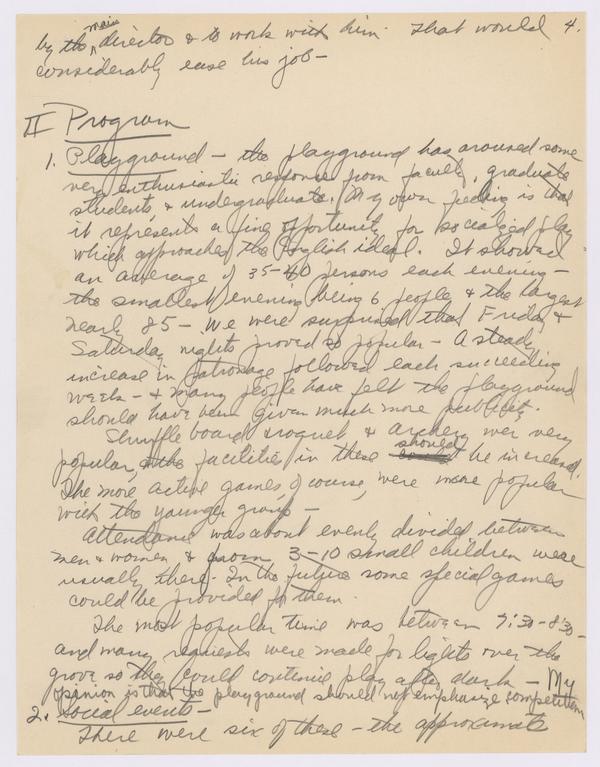 4.
by the main director & to work with him. That would
considerably ease his job –
II Program
1. Playground – the playground has aroused some
very enthusiastic response from faculty, graduate
students, & undergraduate. My own feeling is that
it represents a fine opportunity for socialized play
which approaches the English ideal. It showed
an average of 35-40 persons each evening –
the smallest evening being 6 people & the largest
nearly 85 – We were surprised that Friday &
Saturday nights proved so popular – A steady
increase in patronage followed each succeeding
week – & many people have felt the playground
should have been given much more publicity.
Shuffle board, croquet & archery wer very
popular, & the facilities in these should be increased.
The more active games, of course, were more popular
with the younger group –
Attendance was about evenly divided between
men & women & from 3-10 small children were
usually there. In the future some special games
could be provided for them.
The most popular time was between 7:30-8:30 –
and many requests were made for lights over the
grove so they could continue play after dark – My
opinion is that the playground should not emphasize competition
2. Social events –
There were six of these – the approximate